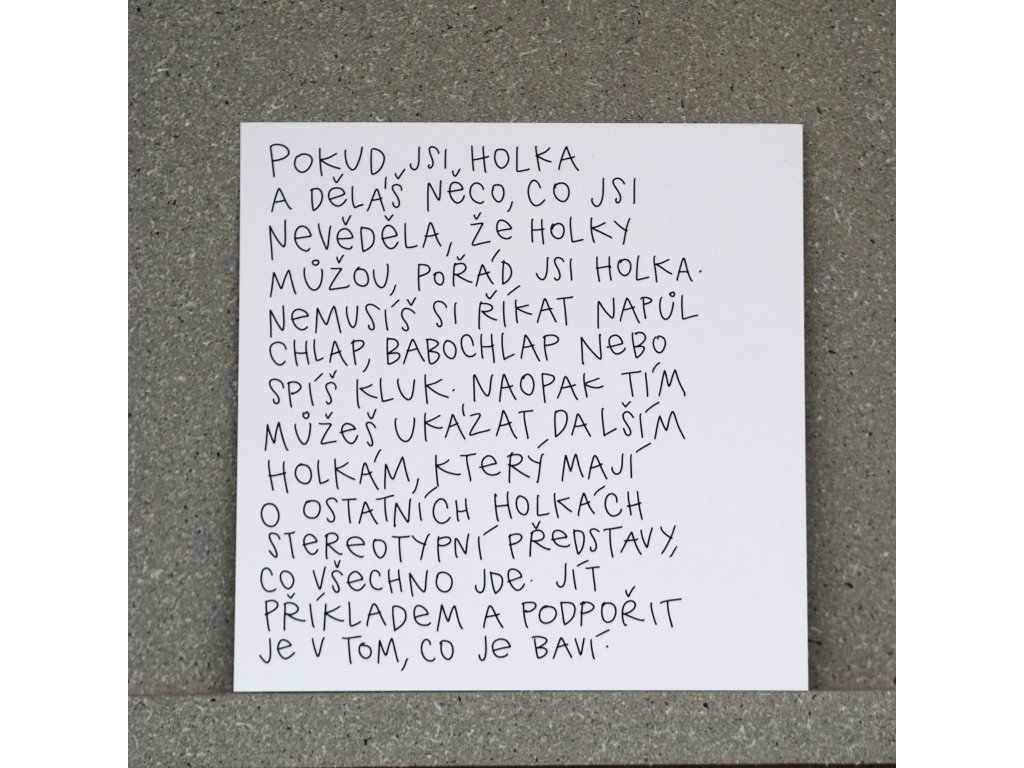 POKUD JSI HOLKA
A DĚLÁŠ NĚCO, CO JSI
NEVĚDĚLA, ŽE HOLKY
MŮŽOU, POŘÁD JSI HOLKA.
NEMUSÍŠ SI ŘÍKAT NAPŮL
CHLAP, BABOCHLAP NEBO
SPÍŠ KLUK. NAOPAK TÍM
MŮŽEŠ UKÁZAT DALŠÍM
HOLKÁM, KTERÝ MAJÍ
O OSTATNÍCH HOLKÁCH
STEREOTYPNÍ PŘEDSTAVY,
CO VŠECHNO JDE. JÍT
PŘÍKLADEM A PODPOŘIT
JE V TOM, CO JE BAVÍ.